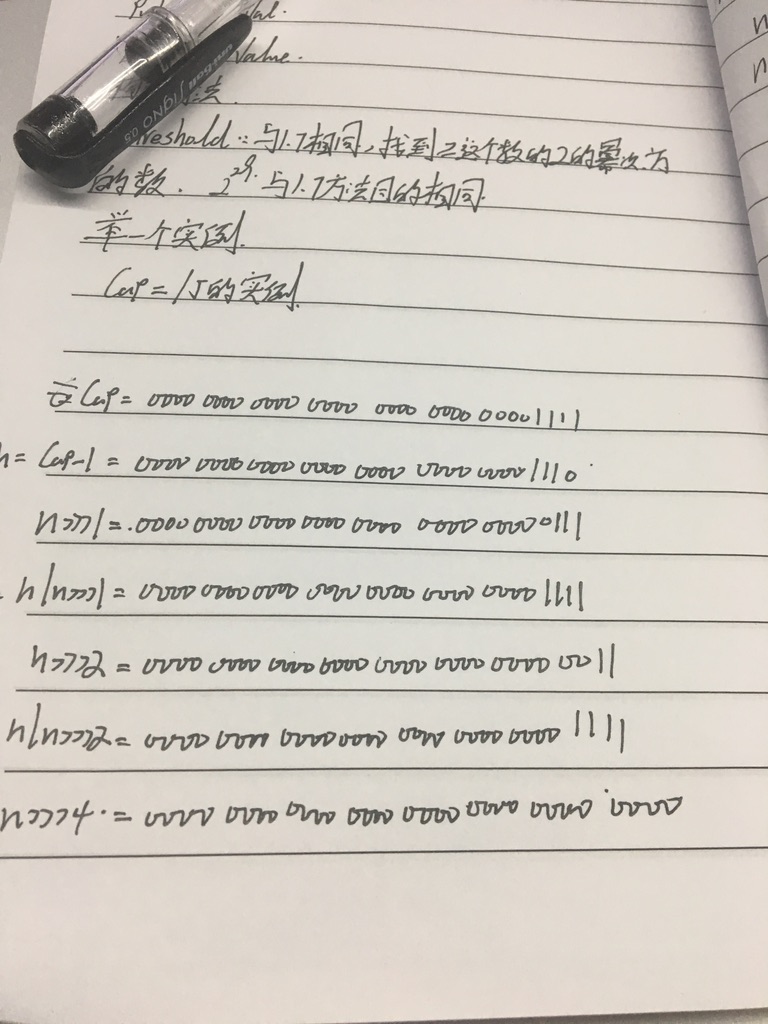 Value.
法.
reshold:: 与1.7相同,找到≥这个数的2的幂次为
的数. 与1.7方法用的相同.
举一个实例.
Cap=15的实例.
Cap= 0000 0000 0000 0000 0000 0000 00001111
n= Cap-1 = 0000 0000 0000 0000 0000 0000 00001110
n>>>1= 0000 0000 0000 0000 0000 0000 00000111
n|n>>>1= 0000 0000 0000 0000 0000 0000 00001111
n>>>2 = 0000 0000 0000 0000 0000 0000 0000 0011
n|n>>>2= 0000 0000 0000 0000 0000 0000 0000 1111
n>>>4.= 0000 0000 0000 0000 0000 0000 0000 0000
uni-ball SIGNO 0.5